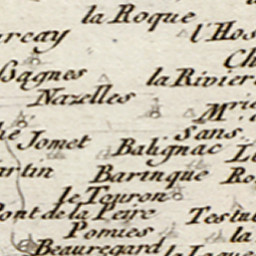 la Roque
l'Hos
urcay
Ch
Bagnes
la Rivier
Nazelles
Mrie
Sans
Jomet
Balignac
artin
Barinque
Ro
le Touron
Pont de la Peire
Testu
Pomies
la
Beauregard